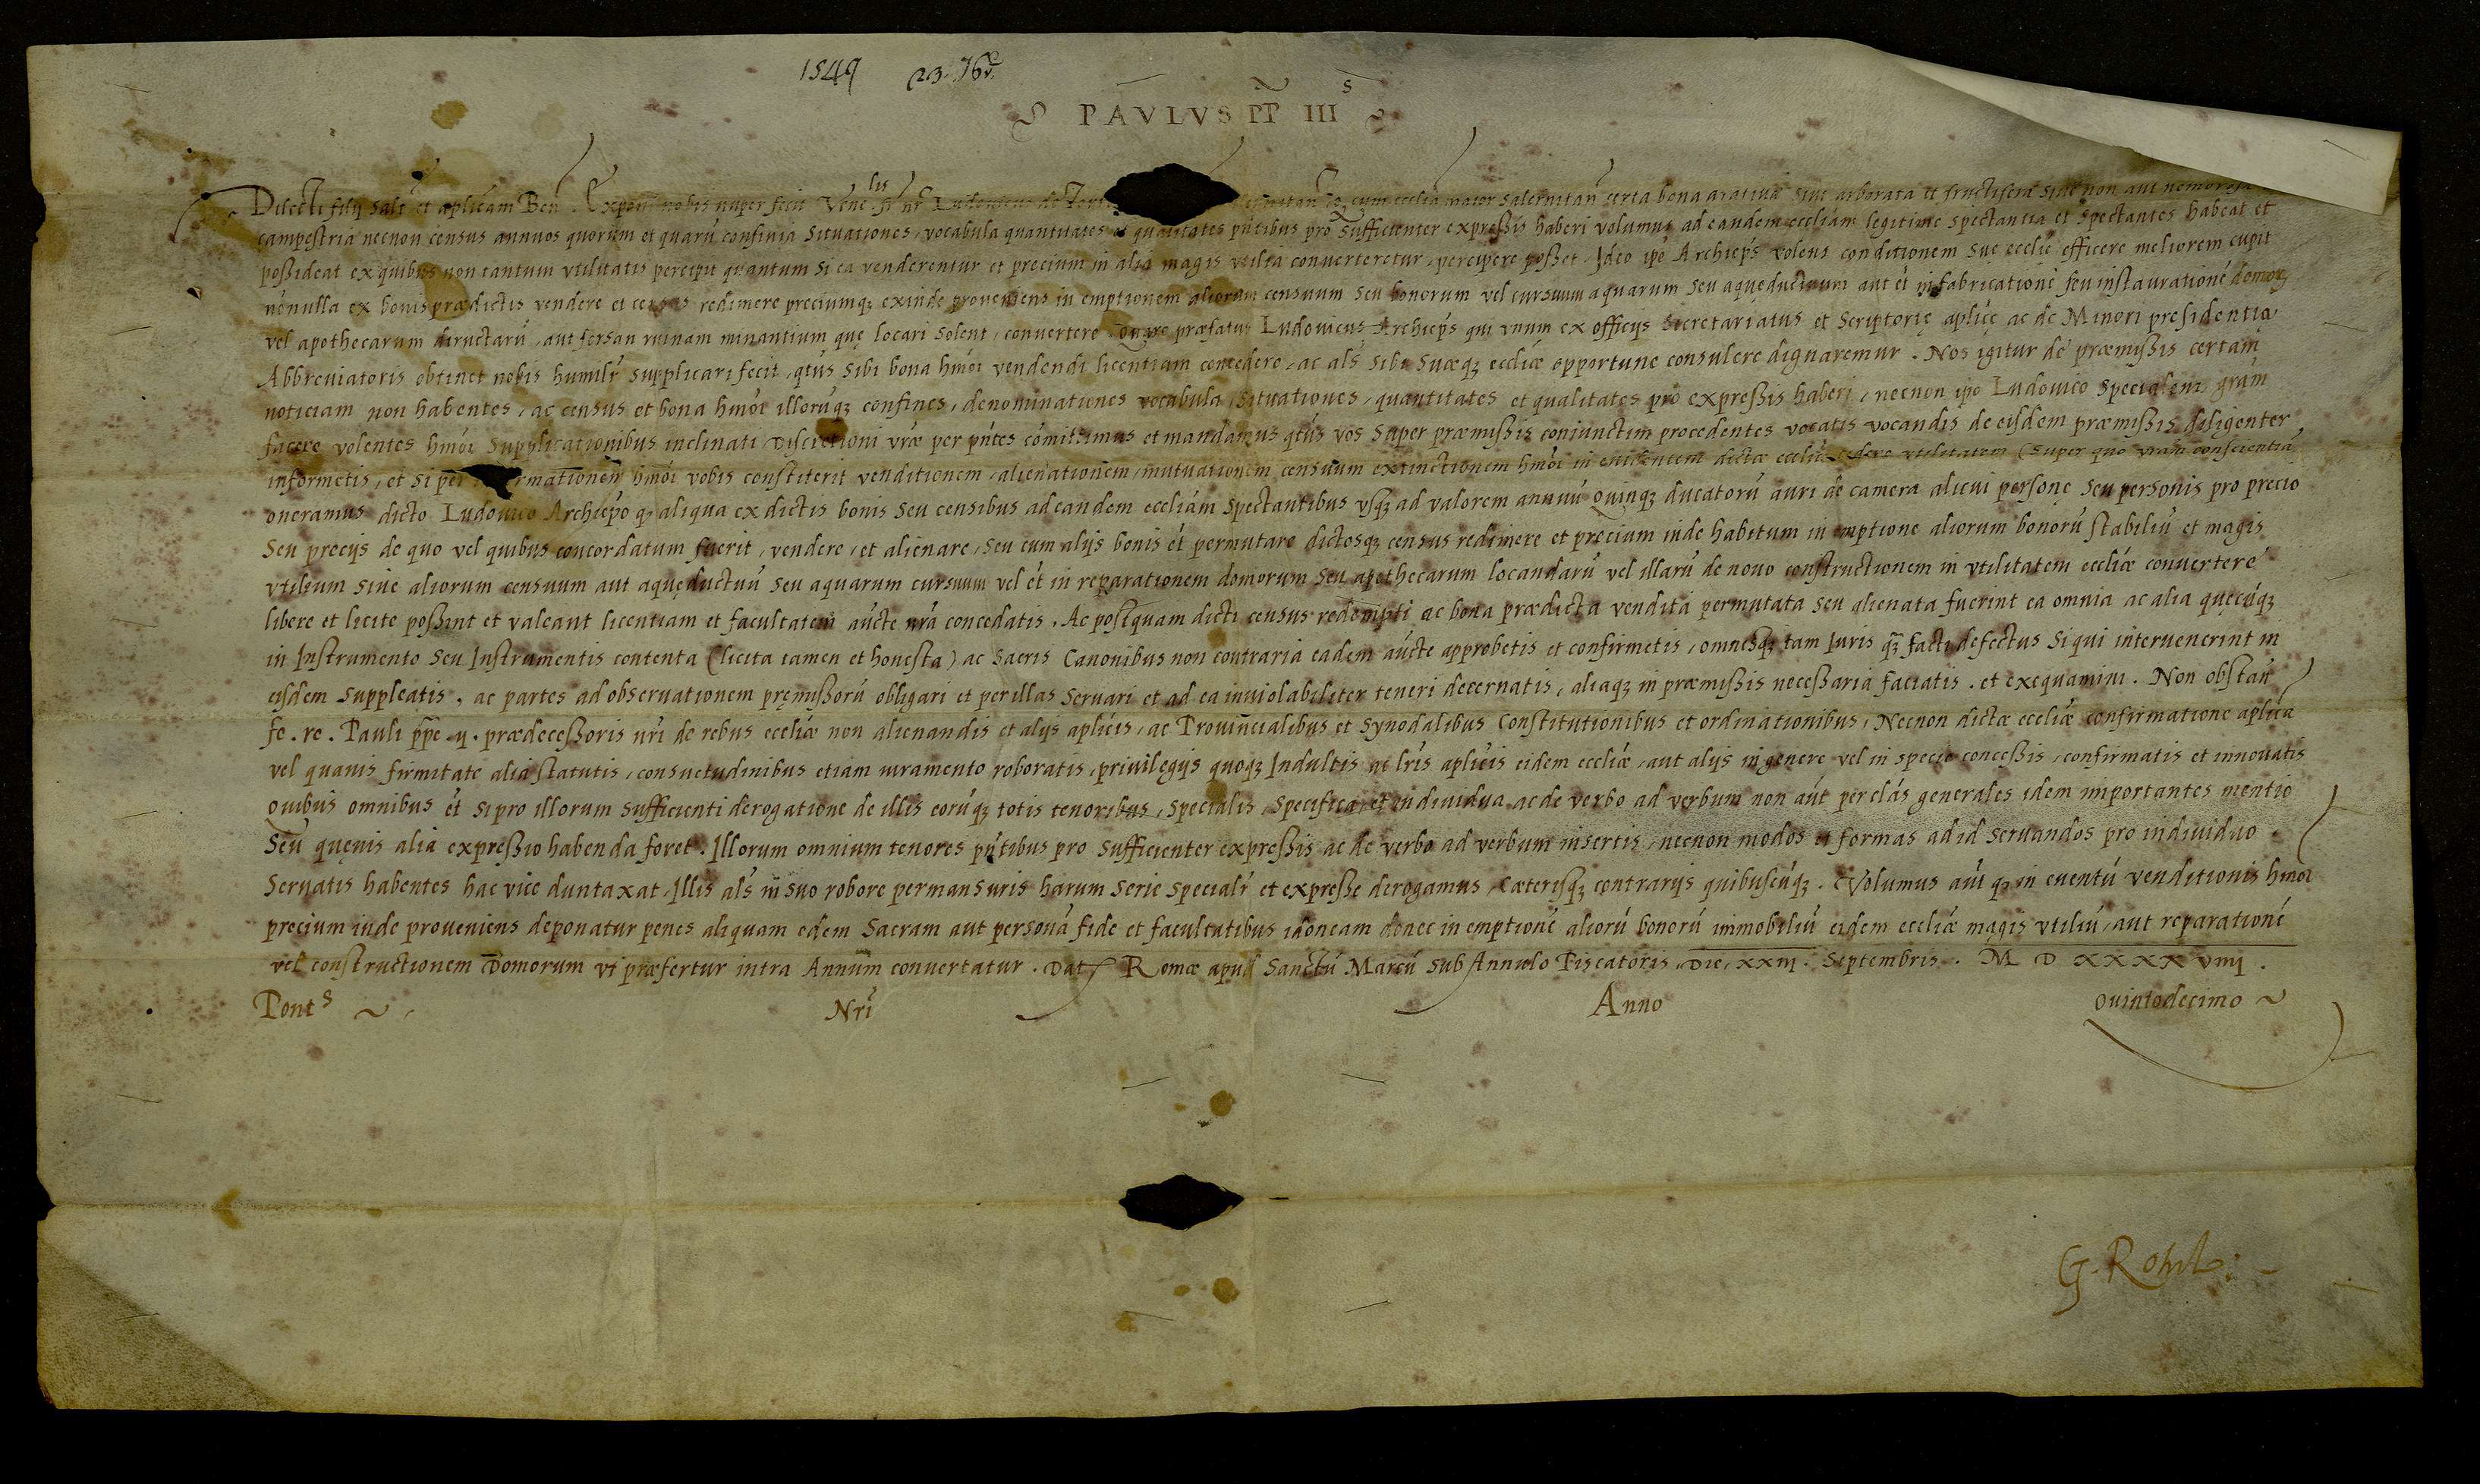 1549 23. 76r.
PAVLVS PP IIIs
Dilecti filij salt et aplicam Ben. Exponi nobis nuper fecit Vene.lis fr nr Ludovicus de cum ecclia maior Salernitan certa bona aratiua siue arborata et fructifera siue non aut nemorosa
campestria necnon census annuos quorum et quarū confinia situationes, vocabula quantitates et qualitates pntibus pro sufficienter expressis haberi volumus ad eandem eccliam legitime spectantia et spectantes habeat et
possideat ex quibus non tantum vtilitatis percipit quantum si ea venderentur et precium in alia magis vtilia conuerteretur, percipere posset. Ideo ipe Archieps volens conditionem sue ecclie efficere meliorem cupit
nōnulla ex bonis prædictis vendere et census redimere preciumq; exinde proueniens in emptionem aliorum censuum seu bonorum vel cursuum aquarum seu aquęductuum aut ēt in fabricationē seu instaurationē domorꝫ
vel apothecarum diructarū, aut forsan ruinam minantium quę locari solent, conuertere. Quare præfatus Ludouicus Archieps qui vnum ex officijs Secretariatus et Scriptorię aplicę ac de Minori presidentia
Abbreuiatoris obtinet nobis humilr supplicari fecit, qtus sibi bona hmoi vendendi licentiam concedere, ac als sibi suæq; eccliæ opportune consulere dignaremur. Nos igitur de præmissis certam
noticiam non habentes, ac census et bona hmoi illorūq; confines, denominationes vocabula, situationes, quantitates et qualitates pro expressis haberi, necnon ipo Ludouico specialem gram
facere volentes hmoi supplicationibus inclinati Discretioni vræ per pntes comittimus et mandamus qtus vos super præmissis coniunctim procedentes vocatis vocandis de eisdem præmissis diligenter
informetis, et si per informationem hmoi vobis constiterit venditionem, alienationem, mutuationem censuum extinctionem hmoi in euidentem dictæ eccliæ cedere vtilitatem (super quo vram conscientiā
oneramus dicto Ludouico Archiepo q aliqua ex dictis bonis seu censibus ad eandem eccliam spectantibus vsq; ad valorem annuū Quinq; ducatorū auri de camera alicui persone seu personis pro precio
seu precijs de quo vel quibus concordatum fuerit, vendere, et alienare, seu cum alijs bonis ēt permutare dictosq; census redimere et precium inde habitum in emptione aliorum bonorū stabiliū et magis
vtilium siue aliorum censuum aut aquęductuū seu aquarum cursuum vel ēt in reparationem domorum seu apothecarum locandarū vel illarū de nouo constructionem in vtilitatem eccliæ conuertere
libere et licite possint et valeant licentiam et facultatem aucte nra concedatis. Ac postquam dicti census redempti ac bona prædicta vendita permutata seu alienata fuerint ea omnia ac alia quęcūq;
in Instrumento seu Instrumentis contenta (licita tamen et honesta) ac sacris Canonibus non contraria eadem aucte approbetis et confirmetis, omnesq; tam Iuris q; facti defectus si qui interuenerint in
eisdem suppleatis, ac partes ad obseruationem pręmissorū obligari et per illas seruari et ad ea inuiolabiliter teneri decernatis, aliaq; in præmissis necessaria faciatis. et exequamini. Non obstan
fe. re. Pauli ppe ij. prædecessoris nri de rebus eccliæ non alienandis et alijs aplicis, ac Prouincialibus et Synodalibus Constitutionibus et ordinationibus, Necnon dictæ eccliæ confirmatione aplica
vel quauis firmitate alia statutis, consuetudinibus etiam iuramento roboratis, priuilęgijs quoq; Indultis ac lris aplicis eidem eccliæ, aut alijs in genere vel in specie concessis, confirmatis et innouatis
Quibus omnibus ēt si pro illorum sufficienti derogatione de illis eorūq; totis tenoribus, specialis, specifica, et indiuidua, ac de verbo ad verbum non aut per clas generales idem importantes mentio
Seu quęuis alia expressio habenda foret. Illorum omnium tenores pntibus pro sufficienter expressis ac de verbo ad verbum insertis, necnon modos et formas ad id seruandos pro indiuiduo
Seruatis habentes hac vice duntaxat, Illis als in suo robore permansuris harum serie specialr et expresse derogamus, Cæterisq; contrarijs quibuscūq;. Volumus aut q in euentū venditionis hmoi
precium inde proueniens deponatur penes aliquam edem sacram aut personā fide et facultatibus idoneam donec in emptionē aliorū bonorū immobiliū eidem eccliæ magis vtiliū, aut reparationē
vel constructionem Domorum vt præfertur intra Annum conuertatur. Dat Romæ apud Sanctū Marcū sub Annulo Piscatoris, Die, xxiij. Septembris. M D XXXX viiij.
Pont.s Nri Anno Quintodecimo
G. Rohl: